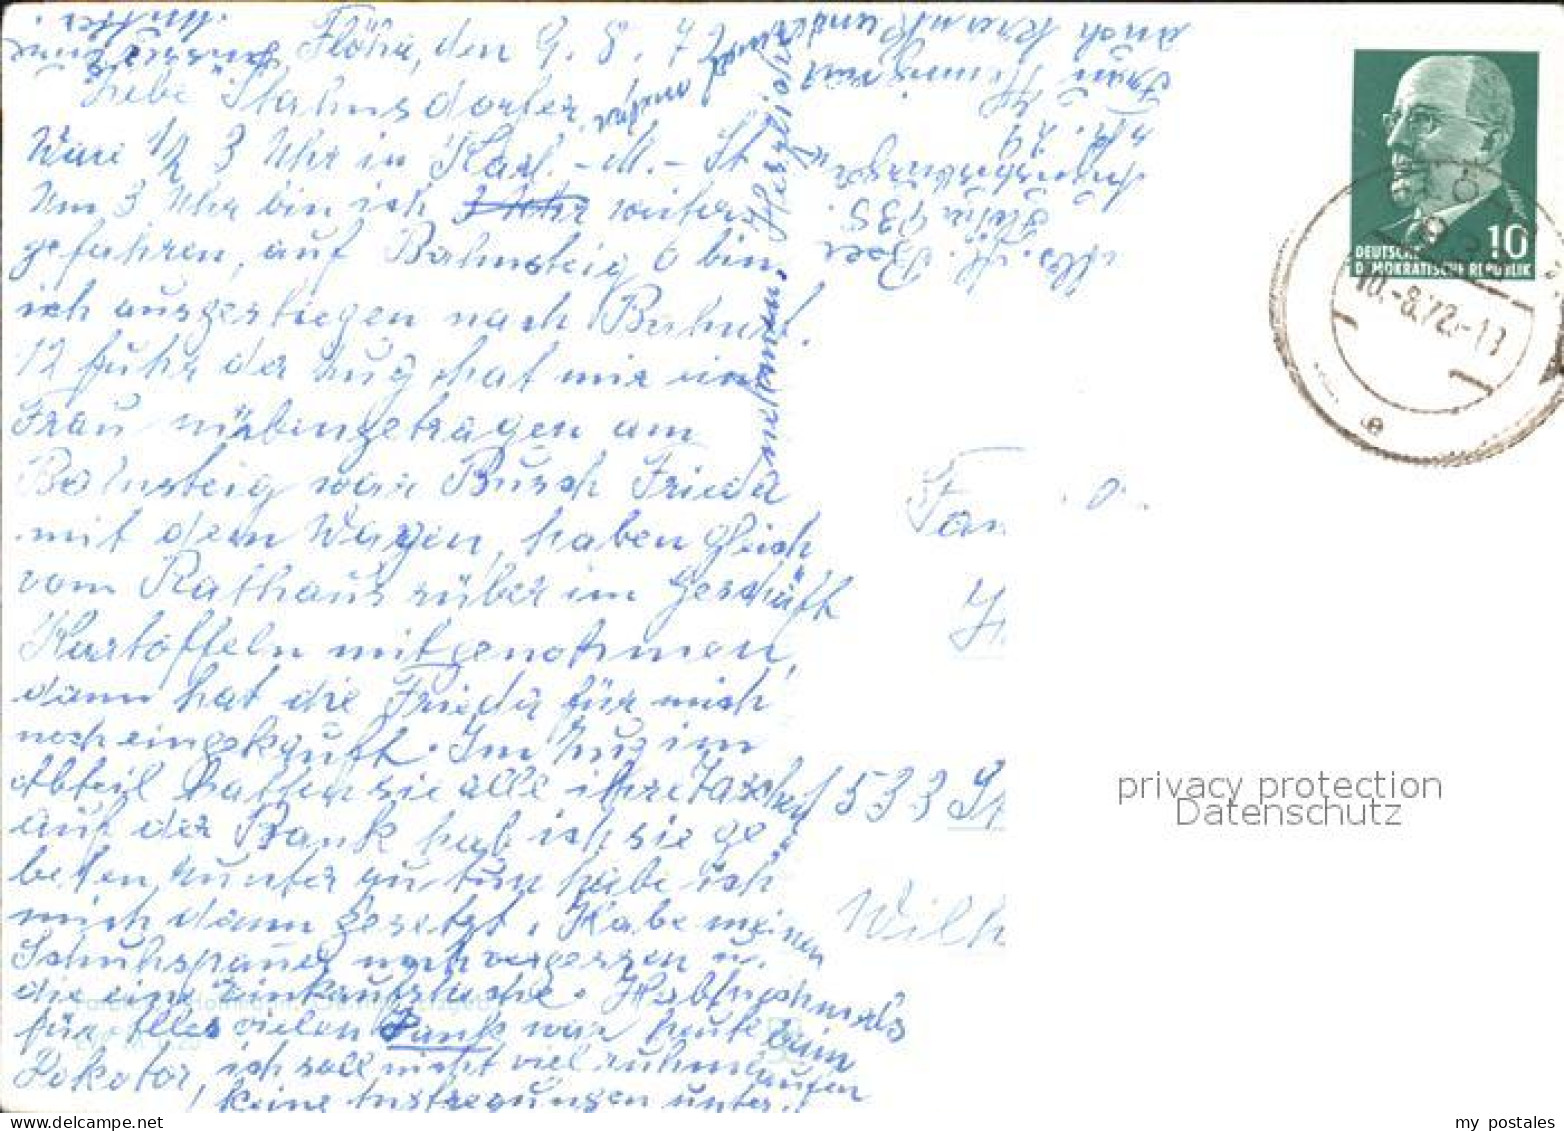 Flöha, den 9. 8. 72
Liebe Stahnsdorfer,
War 1/2 3 Uhr in Karl.-M.-St
Um 3 Uhr bin ich 3 Uhr weiter
gefahren, auf Bahnsteig 6 bin
ich ausgestiegen nach Bahnst.
12 fuhr der Zug hat mir eine
Frau rübergetragen am
Bahnsteig war Busch Frieda
mit dem Wagen, haben gleich
vom Rathaus rüber im Geschäft
Kartoffeln mitgenommen,
dann hat die Frieda für mich
noch eingekauft. Im Zug im
Abteil hatten sie alle ihre Taschen
auf der Bank hab ich sie ge
beten, runter zu tun habe ich
mich dann gesetzt. Habe meinen
Schuhspanner noch vergessen u.
die eine Einkaufstasche. Habt nochmals
für alles vielen Dank war heute beim
Dokotor, ich soll nicht viel rumlaufen
keine Anstregungen unter.
nehmen, Herzliche
Grüße Eure
Mutter.
auch Krankundet
Frau
Nr. 29
Flöha 435.
Abs. M.
DEUTSCHE
DEMOKRATISCHE REPUBLIK
10
10.-8.72.-13
e
Fam
1533 St
Wilh
privacy protection
Datenschutz
my postales